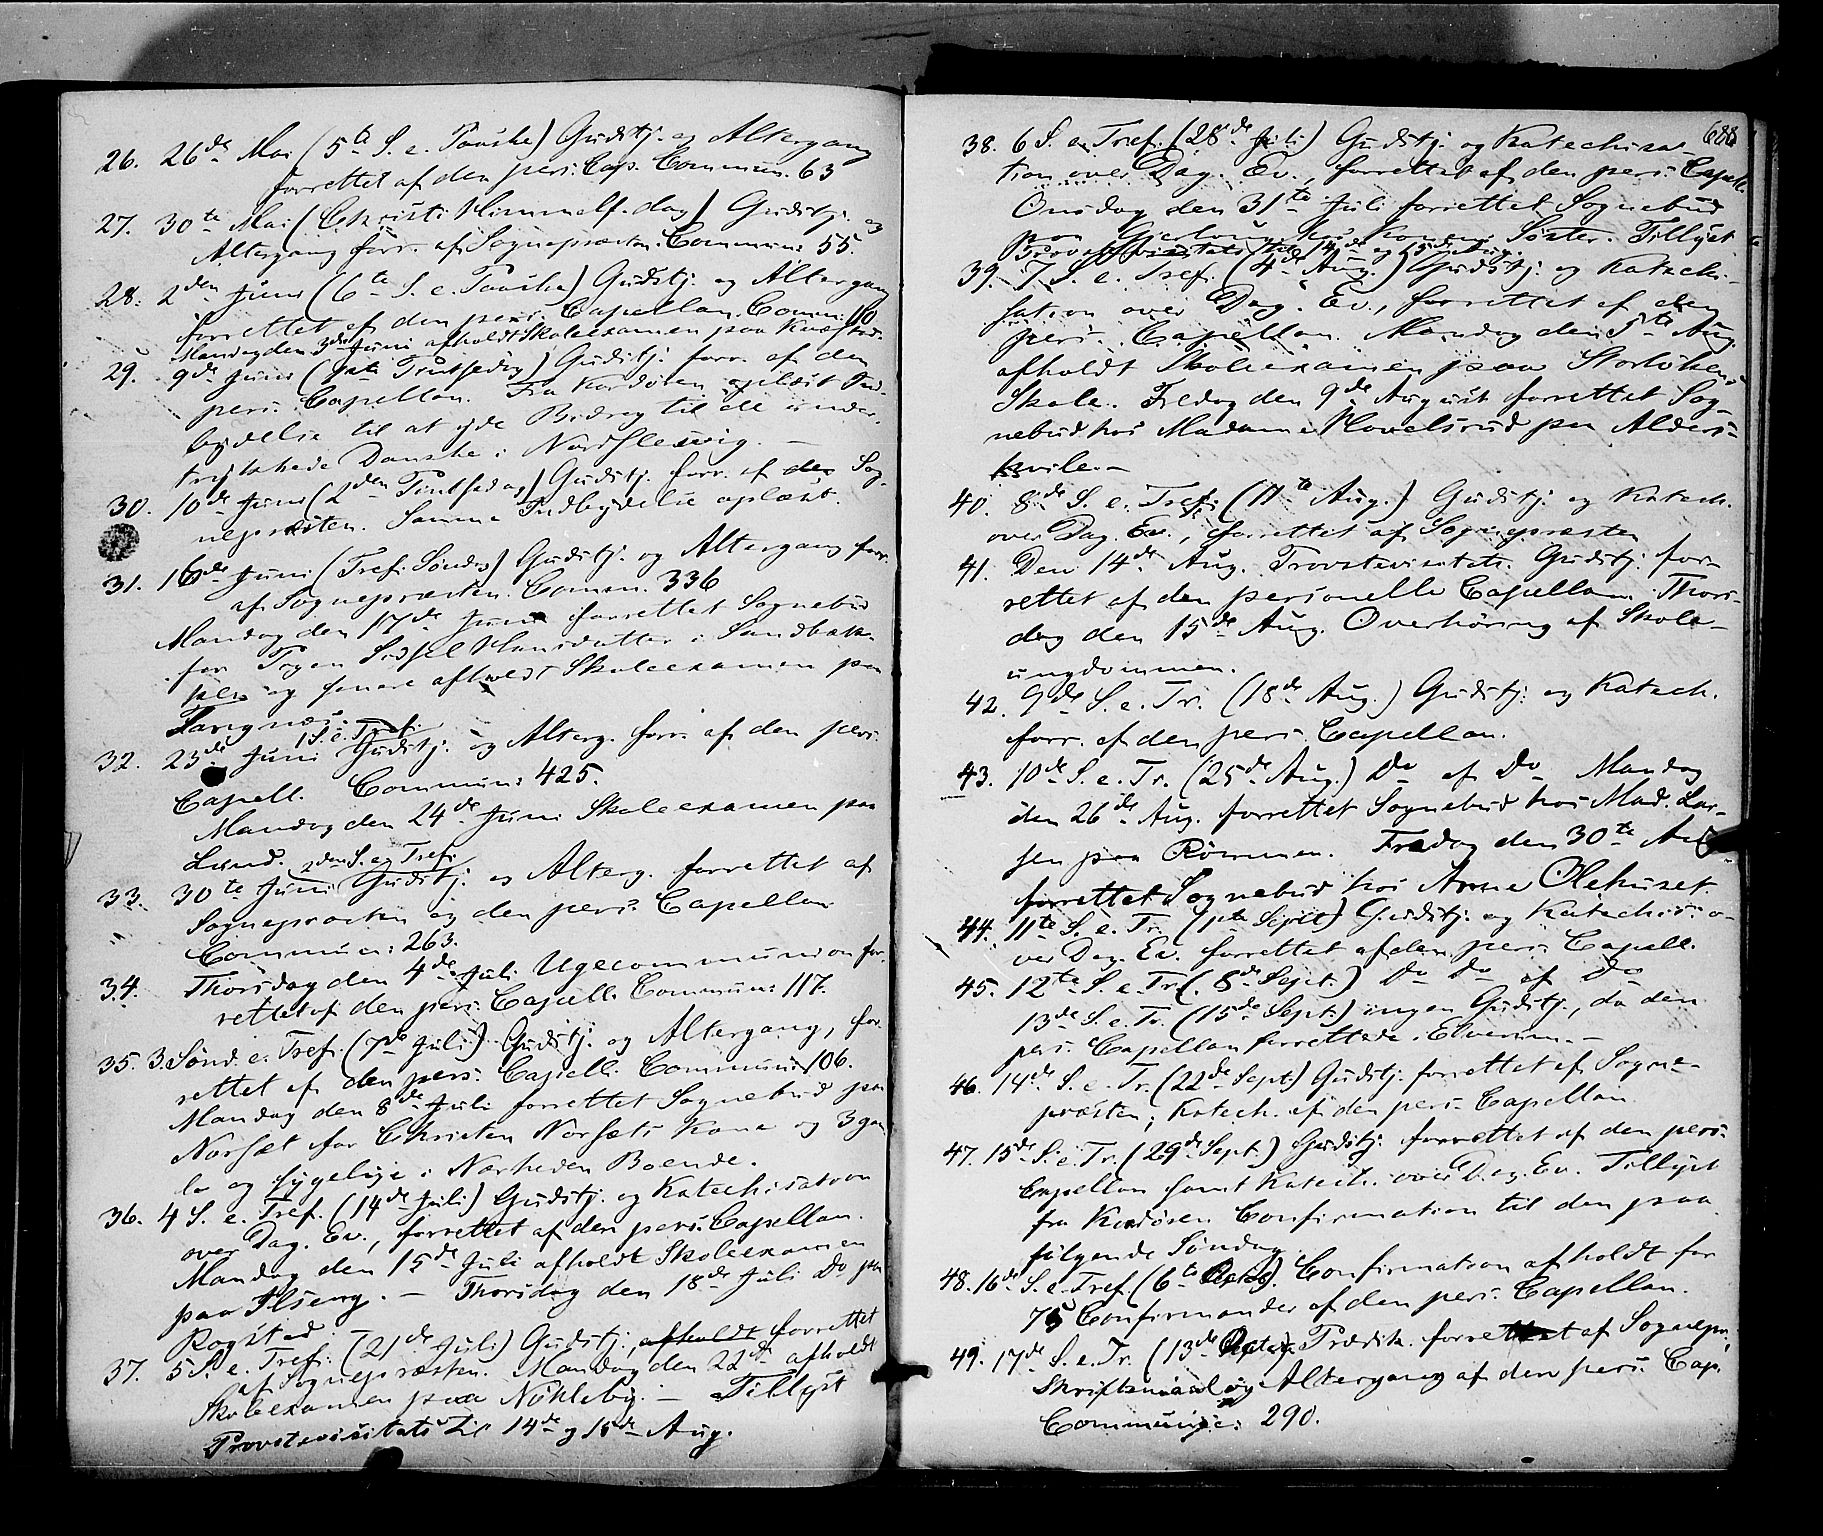 26. 26de Mai (5te S. e. Paaske) Gudstj. og Altergang
forrettet af den pers. Cap. Commun. 63
27. 30te Mai (Christi Himmelf. dag) Gudstj. og
Altergang forr. af Sognepræsten. Commun: 55.
28. 2den Juni (6te S. e. Paaske) Gudstj. og Altergang
forrettet af den pers. Capellan. Comm: 110
Mandag den 3die Juni afholdt Skoleexamen paa
29. 9de Juni (1ste Pintsedag) Gudstj. forr. af den
pers. Capellan. Fra Kordøren oplæst Ind-
bydelse til at yde Bidrag til de under-
trykkede Danske i Nordslesvig. —
30. 10de Juni (2den Pintsedag) Gudstj. forr. af den Sog-
nepræsten. Samme Indbydelse oplæst.
31. 16de Juni (Tref. Søndag) Gudstj. og Altergang forr.
af Sognepræsten. Comm. 336
Mandag den 17de Juni forrettet Sognebud
for Pigen Sidsel Hansdatter i Sandbakken
og senere afholdt Skoleexamen paa
Tangnæs.
1 S. e. Tref.
32. 23de Juni Gudstj. og Alterg. forr. af den pers.
Capell. Commun: 425.
Mandag den 24de Juni Skoleexamen paa
Lund.
2den S. e. Tref.
33. 30te Juni Gudstj. og Alterg. forrettet af
Sognepræsten og den pers. Capellan
Commun: 263.
34. Thorsdag den 4de Juli Ugecommunion for-
rettet af den pers. Capell. Commun: 117.
35. 3. Sønd. e. Tref. (7de Juli) Gudstj. og Altergang, for-
rettet af den pers. Capell. Commun: 106.
Mandag den 8de Juli forrettet Sognebud paa
Norsæt for Christen Norsæts Kone og 3 gam-
le og sygelige i Nærheden Boende.
36. 4 S. e. Tref. (14de Juli) Gudstj. og Katechisation
over Dag. Ev., forrettet af den pers. Capellan.
Mandag den 15de Juli afholdt Skoleexamen
paa Ilseng. — Thorsdag den 18de Juli Do paa
Rogstad.
37. 5 S. e. Tref. (21de Juli) Gudstj., afholdt forrettet
af Sognepræsten. Mandag den 22de afholdt
Skoleexamen paa Nökleby. — Tillyst
Provstevisitats til 14de og 15de Aug.
688
38. 6 S. e. Tref. (28de Juli) Gudstj. og Katechisa-
tion over Dag. Ev., forrettet af den pers. Capell.
Onsdag den 31te Juli forrettet Sognebud
paa hos Konens Søster. Tillyst
Provstevisitats til 14de og 15de Aug.
39. 7 S. e. Tref. (4de Aug.) Gudstj. og Katechi-
sation over Dag. Ev., forrettet af den
pers. Capellan. Mandag den 5te Aug.
afholdt Skoleexamen paa Storlökens
Skole. Fredag den 9de August forrettet Sog-
nebud hos Madame Hovelsrud paa Alders-
hvile. —
40. 8de S. e. Tref. (11te Aug.) Gudstj. og Katech.
over Dag. Ev., forrettet af Sognepræsten
41. Den 14de Aug. Provstevisitats. Gudstj. for-
rettet af den personelle Capellan. Thors-
dag den 15de Aug. Overhöring af Skole-
ungdommen.
42. 9de S. e. Tr. (18de Aug.) Gudstj. og Katech.
forr. af den pers. Capellan.
43. 10de S. e. Tr. (25de Aug.) Do af Do Mandag
den 26de Aug. forrettet Sognebud hos Mad. Lar-
sen paa Römmen. Fredag den 30te Aug.
forrettet Sognebud hos Anne Olehuset
44. 11te S. e. Tr. (1ste Sept.) Gudstj. og Katechis. o-
ver Dag. Ev. forrettet af den pers. Capell.
45. 12te S. e. Tr. (8de Sept.) Do Do af Do
13de S. e. Tr. (15de Sept.) ingen Gudstj., da den
pers. Capellan forrettede i Elverum. —
46. 14de S. e. Tr. (22de Sept.) Gudstj. forrettet af Sogne-
præsten; Katech. af den pers. Capellan
47. 15de S. e. Tr. (29de Sept.) Gudstj. forrettet af den pers.
Capellan samt Katech. over Dag. Ev. Tillyst
fra Kordören Confirmation til den paa-
fölgende Söndag.
48. 16de S. e. Tref. (6te Octob.) Confirmation afholdt for
75 Confirmander af den pers. Capellan.
49. 17de S. e. Tr. (13de Octob.) Prædik. forrettet af Sognepr.,
Skriftemaal og Altergang af den pers. Cap.
Communic: 290.